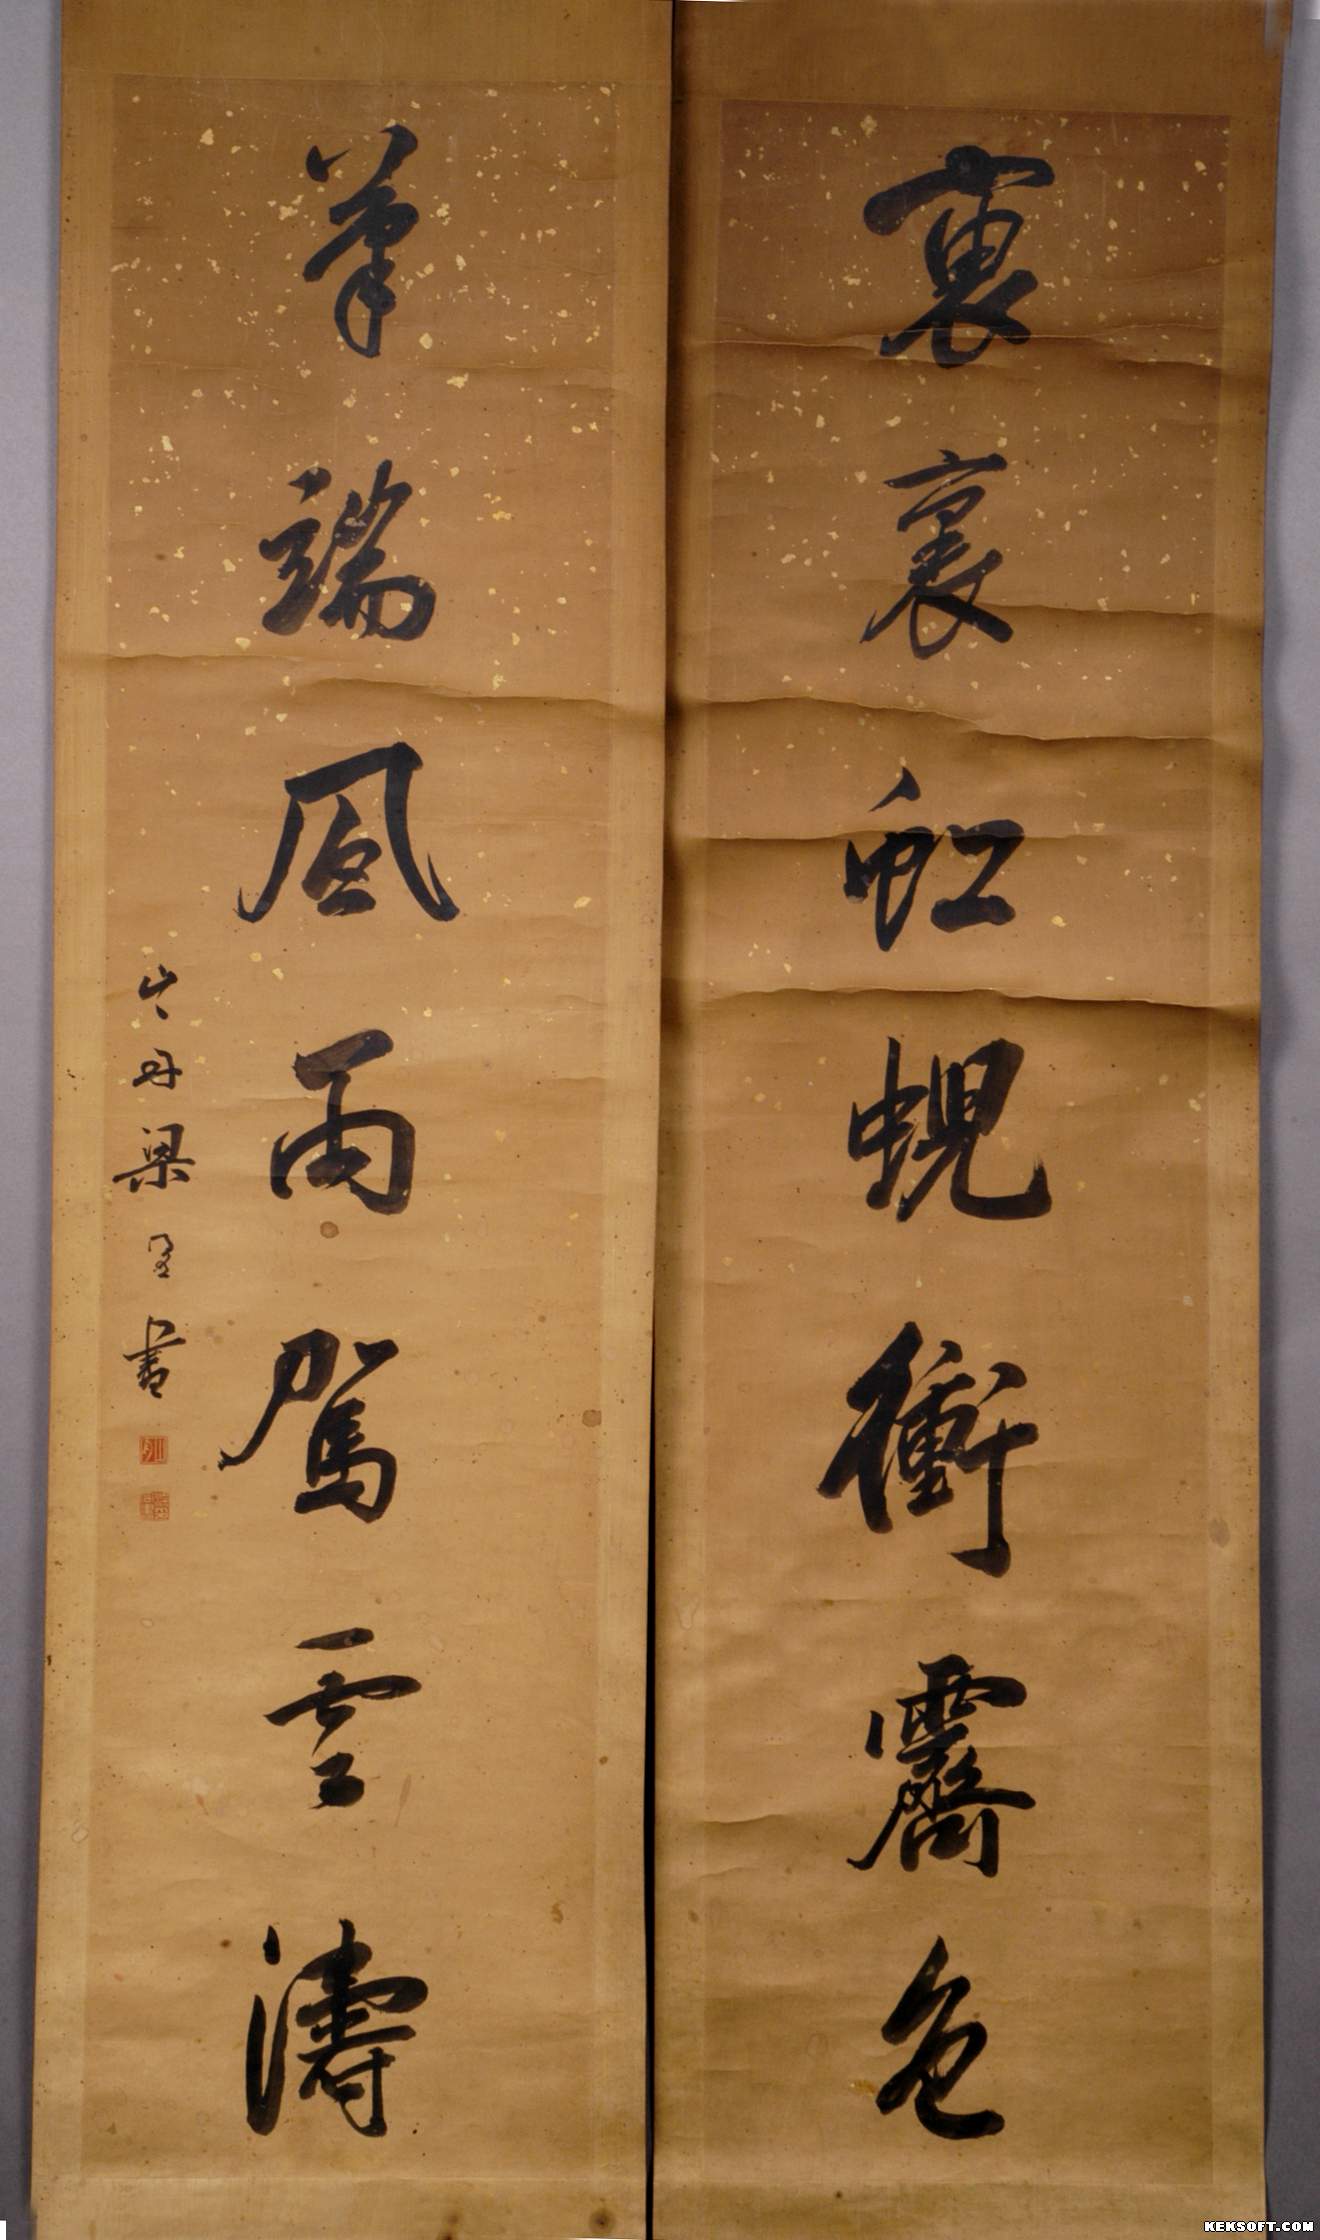 袖裏虹蜺衝霽色
筆端風雨駕雲濤
山舟梁同書
KEKSOFT.COM